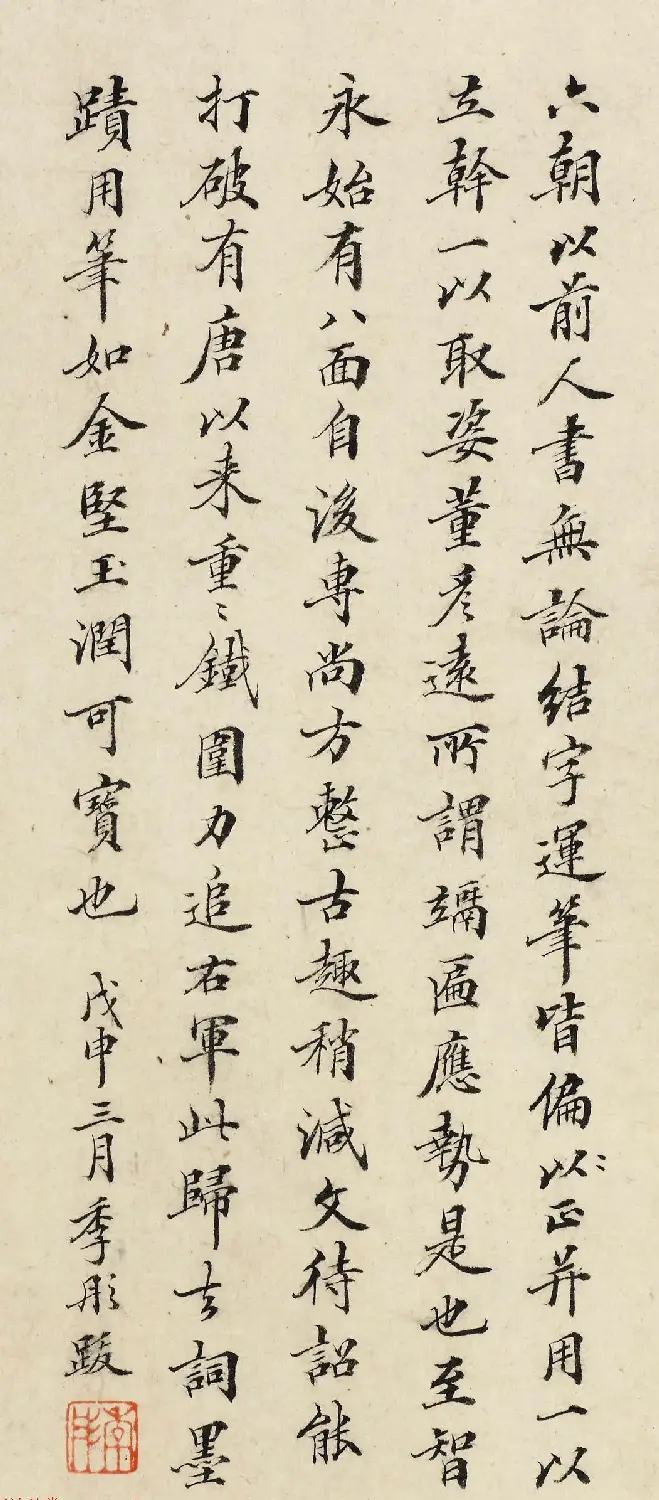 六朝以前人書無論結字運筆皆偏以正并用一以
立幹一以取姿董彥遠所謂竵匾應勢是也至智
永始有八面自後專尚方整古趣稍減文待詔能
打破有唐以来重〻鐵圍力追右軍此歸去詞墨
蹟用筆如金堅玉潤可寶也
戊申三月季彤跋